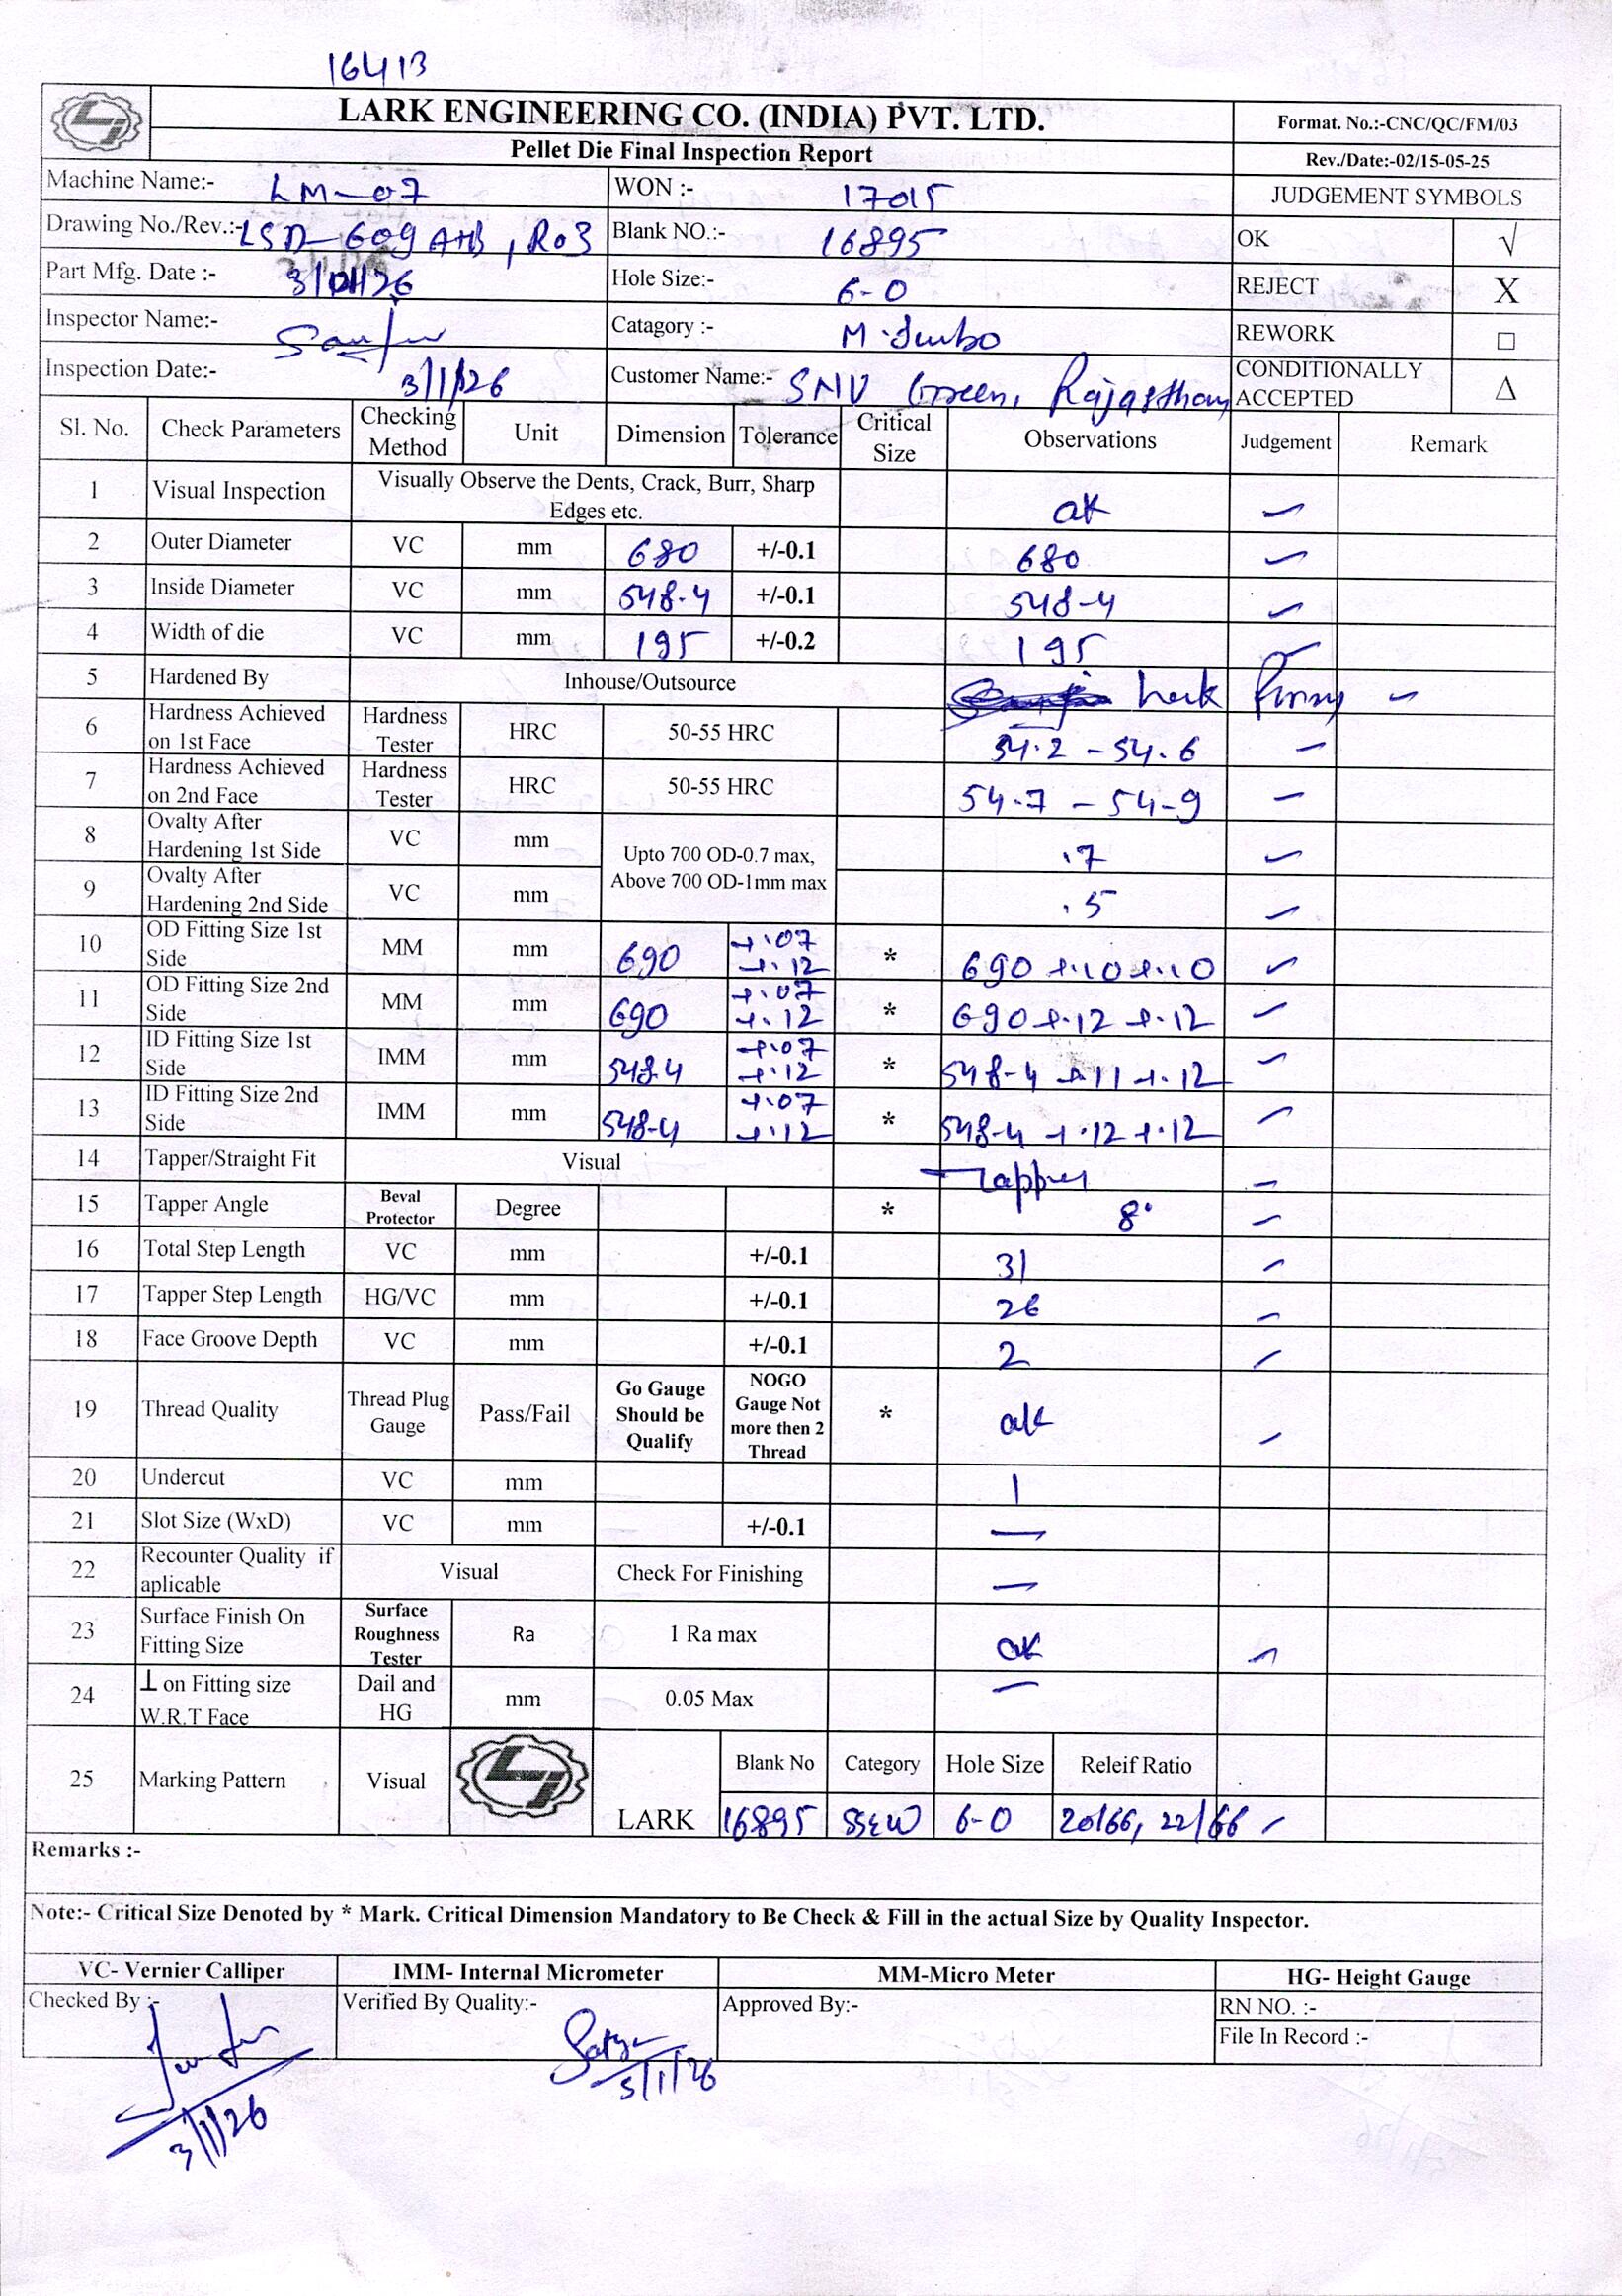 16413
LARK ENGINEERING CO. (INDIA) PVT. LTD.
Format. No.:-CNC/QC/FM/03
Pellet Die Final Inspection Report
Rev./Date:-02/15-05-25
Machine Name:- LM-07 WON :- 17015 JUDGEMENT SYMBOLS
Drawing No./Rev.:- LSD-609 AHB, R03 Blank NO.:- 16895 OK √
Part Mfg. Date :- 3/01/26 Hole Size:- 6-0 REJECT X
Inspector Name:- Catagory :- M-Jumbo REWORK □
Inspection Date:- 3/1/26 Customer Name:- SNV Green, Rajasthan CONDITIONALLY ACCEPTED Δ
Sl. No. Check Parameters Checking Method Unit Dimension Tolerance Critical Size Observations Judgement Remark
1 Visual Inspection Visually Observe the Dents, Crack, Burr, Sharp Edges etc. ok
2 Outer Diameter VC mm 680 +/-0.1 680
3 Inside Diameter VC mm 548.4 +/-0.1 548-4
4 Width of die VC mm 195 +/-0.2 195
5 Hardened By Inhouse/Outsource Lark
6 Hardness Achieved on 1st Face Hardness Tester HRC 50-55 HRC 54.2 - 54.6
7 Hardness Achieved on 2nd Face Hardness Tester HRC 50-55 HRC 54.7 - 54-9
8 Ovalty After Hardening 1st Side VC mm Upto 700 OD-0.7 max, Above 700 OD-1mm max .7
9 Ovalty After Hardening 2nd Side VC mm .5
10 OD Fitting Size 1st Side MM mm 690 +.07 +.12 * 690 +.10 +.10
11 OD Fitting Size 2nd Side MM mm 690 +.07 +.12 * 690 +.12 +.12
12 ID Fitting Size 1st Side IMM mm 548.4 +.07 +.12 * 548-4 +.11 +.12
13 ID Fitting Size 2nd Side IMM mm 548-4 +.07 +.12 * 548-4 +.12 +.12
14 Tapper/Straight Fit Visual Tapper
15 Tapper Angle Beval Protector Degree * 8°
16 Total Step Length VC mm +/-0.1 31
17 Tapper Step Length HG/VC mm +/-0.1 26
18 Face Groove Depth VC mm +/-0.1 2
19 Thread Quality Thread Plug Gauge Pass/Fail Go Gauge Should be Qualify NOGO Gauge Not more then 2 Thread * ok
20 Undercut VC mm 1
21 Slot Size (WxD) VC mm +/-0.1 —
22 Recounter Quality if aplicable Visual Check For Finishing —
23 Surface Finish On Fitting Size Surface Roughness Tester Ra 1 Ra max ok
24 ⊥ on Fitting size W.R.T Face Dail and HG mm 0.05 Max —
25 Marking Pattern Visual LARK Blank No Category Hole Size Releif Ratio
16895 SSEW 6-0 20/66, 22/66
Remarks :-
Note:- Critical Size Denoted by * Mark. Critical Dimension Mandatory to Be Check & Fill in the actual Size by Quality Inspector.
VC- Vernier Calliper IMM- Internal Micrometer MM-Micro Meter HG- Height Gauge
Checked By :- Verified By Quality:- Approved By:- RN NO. :-
File In Record :-
3/1/26